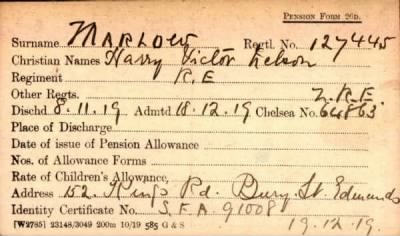 PENSION FORM 26D.
Surname MARLOW Regtl. No. 127445
Christian Names Harry Victor Nelson
Regiment R.E
Other Regts. R.E.
Dischd 8.11.19 Admtd 18.12.19 Chelsea No. 64863
Place of Discharge
Date of issue of Pension Allowance
Nos. of Allowance Forms
Rate of Children's Allowance,
Address 152. Kings Rd. Bury St. Edmunds
Identity Certificate No. S.F.A. 91008
[W2785] 23148/3049 200m 10/19 585 G & S 19.12.19.